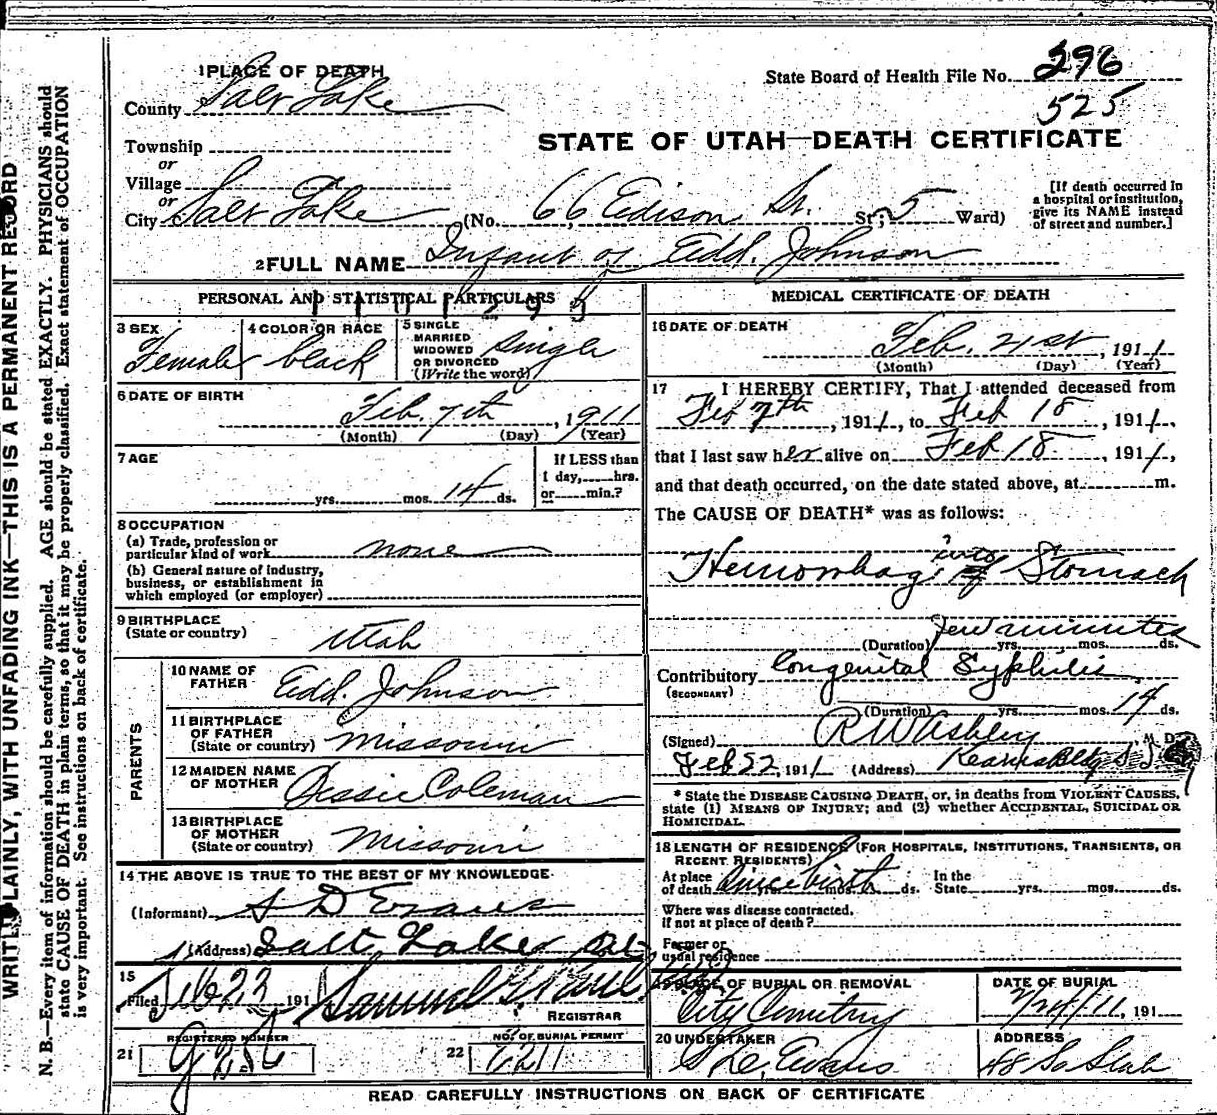 1 PLACE OF DEATH
State Board of Health File No. 296
525
County Salt Lake
STATE OF UTAH—DEATH CERTIFICATE
Township
or
Village
or
City Salt Lake (No. 66 Edison St. St; 5 Ward)
[If death occurred in
a hospital or institution,
give its NAME instead
of street and number.]
2 FULL NAME Infant of Edd. Johnson
PERSONAL AND STATISTICAL PARTICULARS
3 SEX
Female
4 COLOR OR RACE
black
5 SINGLE
MARRIED
WIDOWED
OR DIVORCED
(Write the word)
Single
6 DATE OF BIRTH
Feb. 7th, 1911
(Month) (Day) (Year)
7 AGE
yrs. mos. 14 ds.
If LESS than
1 day, hrs.
or min.?
8 OCCUPATION
(a) Trade, profession or
particular kind of work none
(b) General nature of industry,
business, or establishment in
which employed (or employer)
9 BIRTHPLACE
(State or country)
Utah
PARENTS
10 NAME OF
FATHER Edd. Johnson
11 BIRTHPLACE
OF FATHER
(State or country) Missouri
12 MAIDEN NAME
OF MOTHER Jessie Coleman
13 BIRTHPLACE
OF MOTHER
(State or country) Missouri
14 THE ABOVE IS TRUE TO THE BEST OF MY KNOWLEDGE
(Informant) S D Evans
(Address) Salt Lake
15
Filed Feb 23 191 Samuel G. Paul
REGISTRAR
21 REGISTERED NUMBER
22 NO. OF BURIAL PERMIT
6211
MEDICAL CERTIFICATE OF DEATH
16 DATE OF DEATH
Feb. 21st, 1911
(Month) (Day) (Year)
17 I HEREBY CERTIFY, That I attended deceased from
Feb 7th, 1911, to Feb 18, 1911,
that I last saw her alive on Feb 18, 1911,
and that death occurred, on the date stated above, at m.
The CAUSE OF DEATH* was as follows:
Hemorrhage into Stomach
few minutes
(Duration) yrs. mos. ds.
Contributory Congenital Syphilis
(SECONDARY)
(Duration) yrs. mos. 14 ds.
(Signed) R W Ashley M. D.
Feb 22, 1911 (Address) Kearns Bldg
* State the DISEASE CAUSING DEATH, or, in deaths from VIOLENT CAUSES,
state (1) MEANS OF INJURY; and (2) whether ACCIDENTAL, SUICIDAL OR
HOMICIDAL.
18 LENGTH OF RESIDENCE (FOR HOSPITALS, INSTITUTIONS, TRANSIENTS, OR
RECENT RESIDENTS)
At place
of death since birth yrs. mos. ds. In the
State yrs. mos. ds.
Where was disease contracted,
if not at place of death?
Former or
usual residence
19 PLACE OF BURIAL OR REMOVAL
City Cemetry
DATE OF BURIAL
2/24/11, 191
20 UNDERTAKER
Evans
ADDRESS
48 So State
READ CAREFULLY INSTRUCTIONS ON BACK OF CERTIFICATE
WRITE PLAINLY, WITH UNFADING INK—THIS IS A PERMANENT RECORD
N. B.—Every item of information should be carefully supplied. AGE should be stated EXACTLY. PHYSICIANS should
state CAUSE OF DEATH in plain terms, so that it may be properly classified. Exact statement of OCCUPATION
is very important. See instructions on back of certificate.